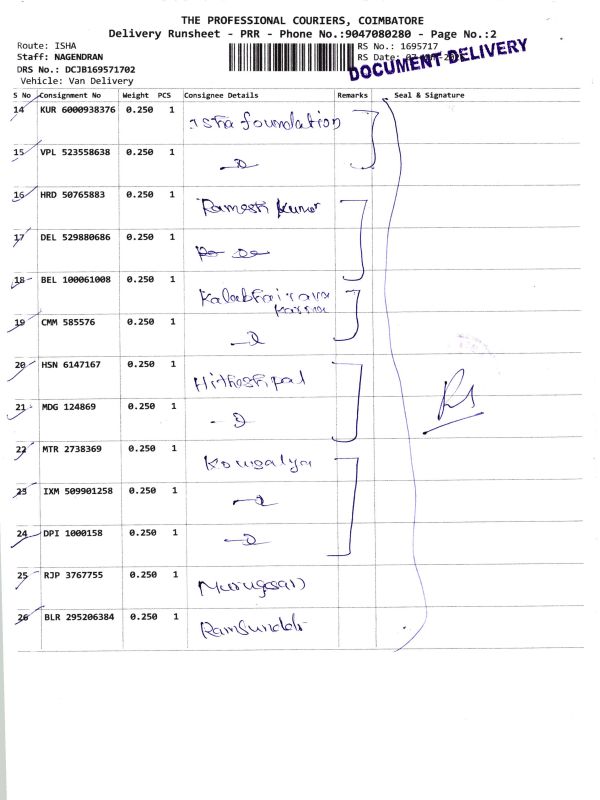 THE PROFESSIONAL COURIERS, COIMBATORE
Delivery Runsheet - PRR - Phone No.:9047080280 - Page No.:2
Route: ISHA
RS No.: 1695717
Staff: NAGENDRAN
RS Date:
DOCUMENT DELIVERY
DRS No.: DCJB169571702
Vehicle: Van Delivery
S No Consignment No Weight PCS Consignee Details Remarks Seal & Signature
14 KUR 6000938376 0.250 1 Isha foundation
15 VPL 523558638 0.250 1
16 HRD 50765883 0.250 1 Ramesh Kumar
17 DEL 529880686 0.250 1
18 BEL 100061008 0.250 1 Kalabhairava
19 CMM 585576 0.250 1
20 HSN 6147167 0.250 1 Hitheshpal
21 MDG 124869 0.250 1
22 MTR 2738369 0.250 1 Kowsalya
23 IXM 509901258 0.250 1
24 DPI 1000158 0.250 1
25 RJP 3767755 0.250 1 Murugesan
26 BLR 295206384 0.250 1 Ramsundar